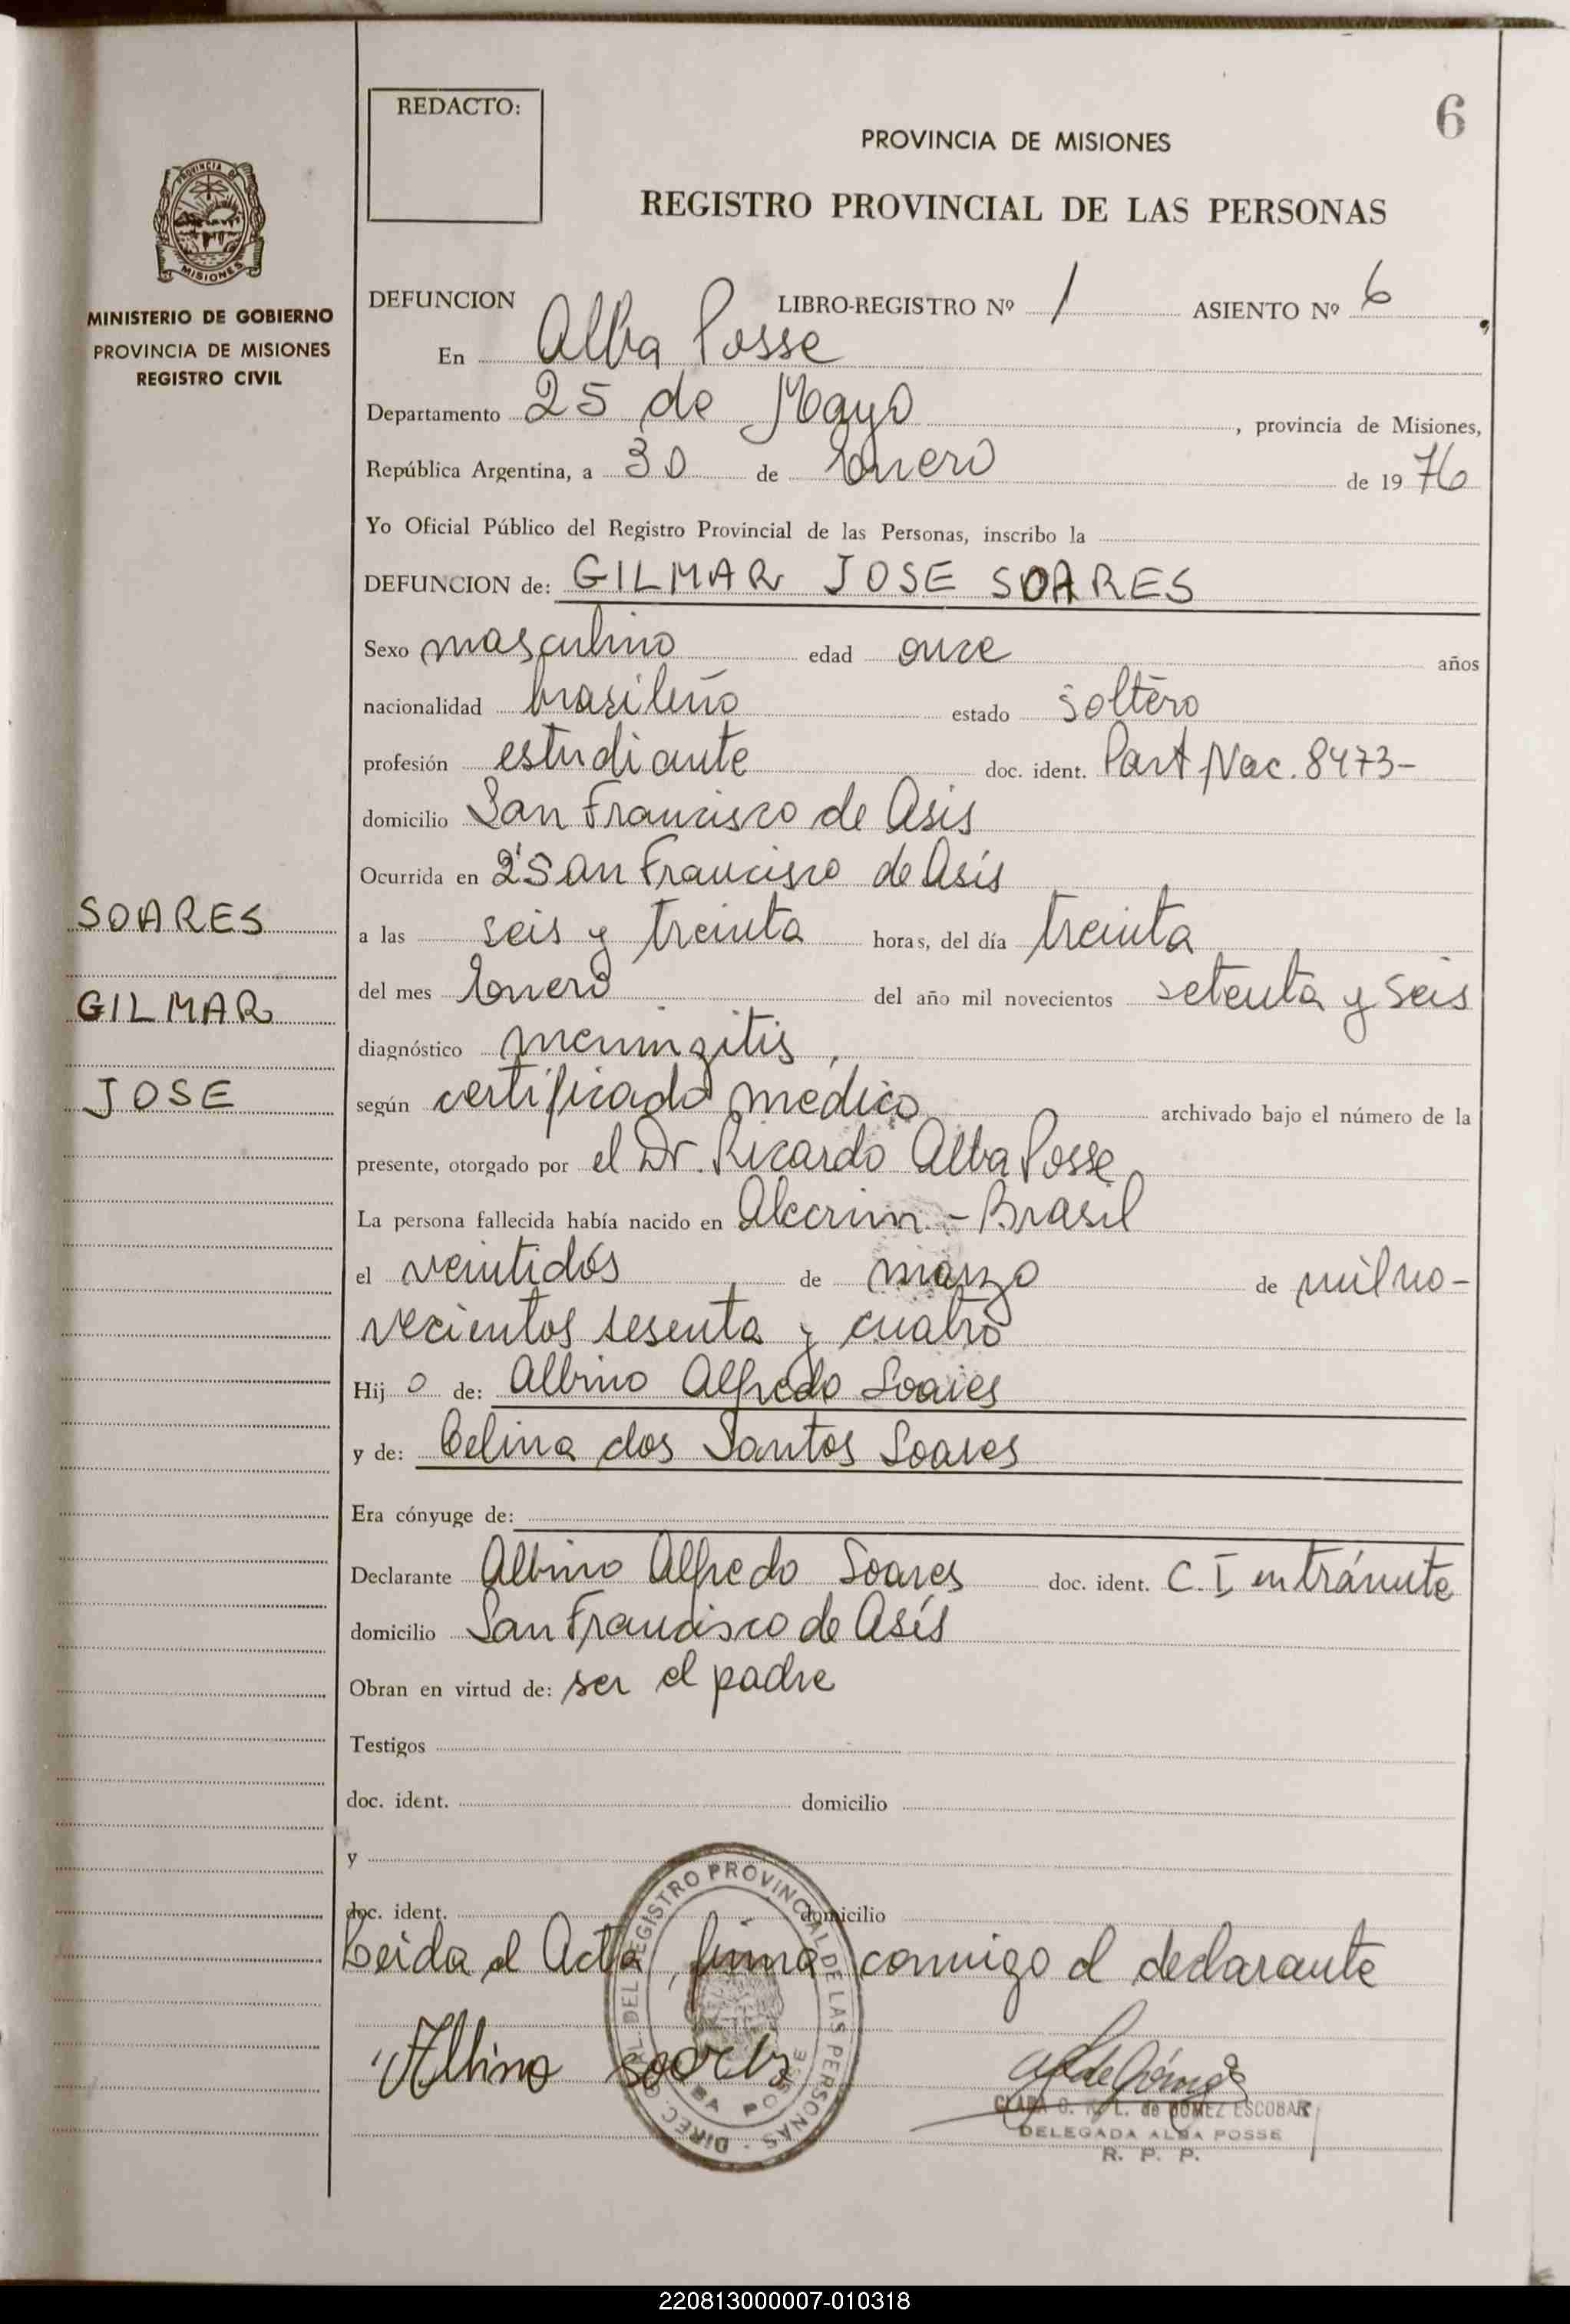 6
REDACTO:
PROVINCIA DE MISIONES
REGISTRO PROVINCIAL DE LAS PERSONAS
PROVINCIA DE
MISIONES
MINISTERIO DE GOBIERNO
PROVINCIA DE MISIONES
REGISTRO CIVIL
DEFUNCION LIBRO-REGISTRO Nº 1 ASIENTO Nº 6
En Alba Posse
Departamento 25 de Mayo, provincia de Misiones,
República Argentina, a 30 de Enero de 1976
Yo Oficial Público del Registro Provincial de las Personas, inscribo la
DEFUNCION de: GILMAR JOSE SOARES
Sexo masculino edad once años
nacionalidad brasileño estado soltero
profesión estudiante doc. ident. Part Nac. 8473-
domicilio San Francisco de Asis
Ocurrida en San Francisco de Asís
a las seis y treinta horas, del día treinta
del mes Enero del año mil novecientos setenta y seis
diagnóstico meningitis,
según certificado médico archivado bajo el número de la
presente, otorgado por el Dr. Ricardo Alba Posse
La persona fallecida había nacido en Alecrim - Brasil
el veintidós de marzo de mil no-
vecientos sesenta y cuatro
Hijo de: Albino Alfredo Soares
y de: Celina dos Santos Soares
Era cónyuge de:
Declarante Albino Alfredo Soares doc. ident. C. I en trámite
domicilio San Francisco de Asís
Obran en virtud de: ser el padre
Testigos
doc. ident. domicilio
y
doc. ident. domicilio
Leida el Acta, firma conmigo el declarante
Albino Soares
DIREC. GRAL. DEL REGISTRO PROVINCIAL DE LAS PERSONAS
ALBA POSSE
de GOMEZ ESCOBAR
DELEGADA ALBA POSSE
R. P. P.
SOARES
GILMAR
JOSE
220813000007-010318